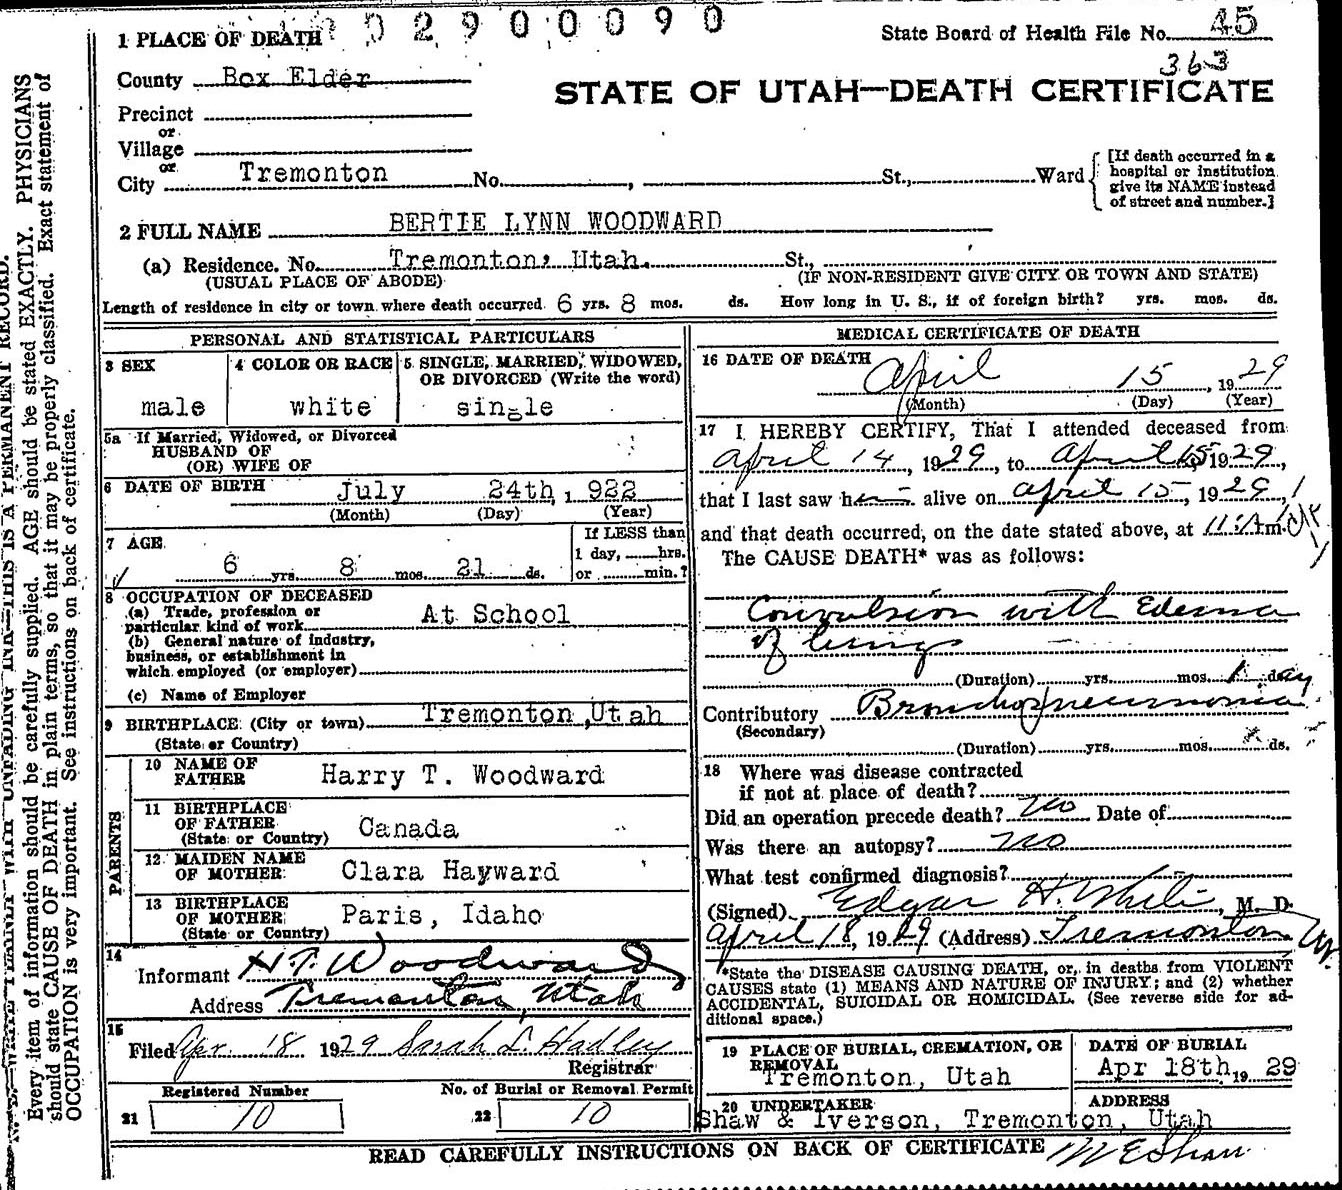 2900090
1 PLACE OF DEATH
State Board of Health File No. 45
363
County Box Elder
STATE OF UTAH—DEATH CERTIFICATE
Precinct
or
Village
or
City Tremonton No. , St., Ward
[If death occurred in a
hospital or institution
give its NAME instead
of street and number.]
2 FULL NAME BERTIE LYNN WOODWARD
(a) Residence. No. Tremonton, Utah. St.,
(USUAL PLACE OF ABODE) (IF NON-RESIDENT GIVE CITY OR TOWN AND STATE)
Length of residence in city or town where death occurred 6 yrs. 8 mos. ds. How long in U. S., if of foreign birth? yrs. mos. ds.
PERSONAL AND STATISTICAL PARTICULARS
3 SEX
male
4 COLOR OR RACE
white
5 SINGLE, MARRIED, WIDOWED,
OR DIVORCED (Write the word)
single
5a If Married, Widowed, or Divorced
HUSBAND OF
(OR) WIFE OF
6 DATE OF BIRTH July 24th, 1922
(Month) (Day) (Year)
7 AGE
6 yrs. 8 mos. 21 ds.
If LESS than
1 day, hrs.
or min.?
8 OCCUPATION OF DECEASED
(a) Trade, profession or
particular kind of work At School
(b) General nature of industry,
business, or establishment in
which employed (or employer)
(c) Name of Employer
9 BIRTHPLACE (City or town) Tremonton, Utah
(State or Country)
PARENTS
10 NAME OF
FATHER Harry T. Woodward
11 BIRTHPLACE
OF FATHER
(State or Country) Canada
12 MAIDEN NAME
OF MOTHER Clara Hayward
13 BIRTHPLACE
OF MOTHER
(State or Country) Paris, Idaho
14
Informant H.T. Woodward
Address Tremonton, Utah
15
Filed Apr. 18 1929 Sarah L. Hadley
Registrar
Registered Number
21 10
No. of Burial or Removal Permit
22 10
MEDICAL CERTIFICATE OF DEATH
16 DATE OF DEATH April 15, 1929
(Month) (Day) (Year)
17 I HEREBY CERTIFY, That I attended deceased from
April 14, 1929, to April 15 1929,
that I last saw him alive on April 15, 1929,
and that death occurred, on the date stated above, at 11 m.
The CAUSE DEATH* was as follows:
Convulsion with Edema
of lungs
(Duration) yrs. mos. 1 day
Contributory Bronchopneumonia
(Secondary)
(Duration) yrs. mos. ds.
18 Where was disease contracted
if not at place of death?
Did an operation precede death? No Date of
Was there an autopsy? no
What test confirmed diagnosis?
(Signed) Edgar H. White, M. D.
April 18, 1929 (Address) Tremonton
*State the DISEASE CAUSING DEATH, or, in deaths from VIOLENT
CAUSES state (1) MEANS AND NATURE OF INJURY; and (2) whether
ACCIDENTAL, SUICIDAL OR HOMICIDAL. (See reverse side for ad-
ditional space.)
19 PLACE OF BURIAL, CREMATION, OR
REMOVAL
Tremonton, Utah
DATE OF BURIAL
Apr 18th 1929
20 UNDERTAKER ADDRESS
Shaw & Iverson, Tremonton, Utah
READ CAREFULLY INSTRUCTIONS ON BACK OF CERTIFICATE
M E Shaw
WRITE PLAINLY WITH UNFADING INK—THIS IS A PERMANENT RECORD.
Every item of information should be carefully supplied. AGE should be stated EXACTLY. PHYSICIANS
should state CAUSE OF DEATH in plain terms, so that it may be properly classified. Exact statement of
OCCUPATION is very important. See instructions on back of certificate.